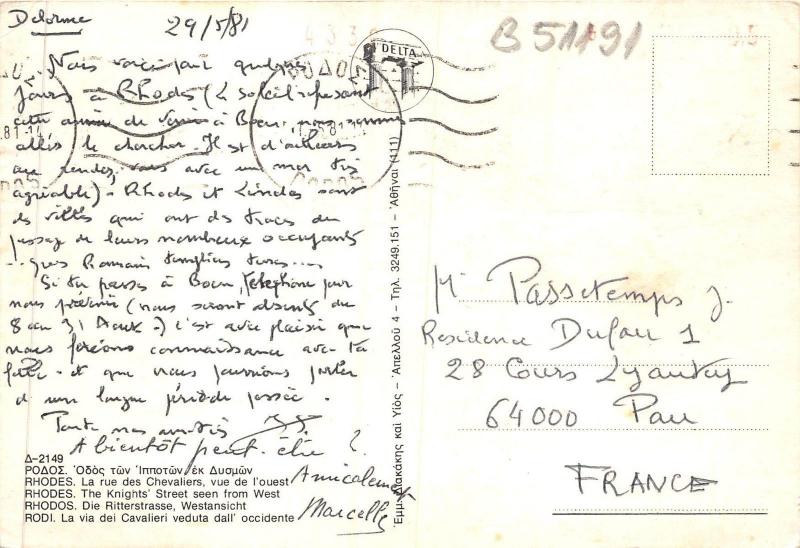 Delorme
29/5/81
B 51191
DELTA
ΡΟΔΟΣ
Nous voici pour quelques
jours à Rhodes (le soleil refusant
cette année de venir à Boen nous sommes
allés le chercher. Il est d'ailleurs
au rendez-vous avec un mer très
agréable). Rhodes et Lindos sont
des villes qui ont des traces du
passage de leurs nombreux occupants
...grecs Romains templiers turcs....
Si tu passes à Boen, téléphone pour
nous prévenir (nous serons absents du
8 au 31 Aout) c'est avec plaisir que
nous ferons connaissance avec ta
et que nous pourrions parler
d'une longue période passée.
Toute nos amitiés
A bientôt peut-être ?
Amicalement
Marcelle
Δ-2149
ΡΟΔΟΣ. Ὁδὸς τῶν Ἱπποτῶν ἐκ Δυσμῶν
RHODES. La rue des Chevaliers, vue de l'ouest
RHODES. The Knights' Street seen from West
RHODOS. Die Ritterstrasse, Westansicht
RODI. La via dei Cavalieri veduta dall' occidente
Διακάκης καὶ Υἱός - Ἀπελλοῦ 4 - Τηλ. 3249.151 - Ἀθῆναι (111)
M. Passetemps J.
Residence Dufau 1
28 Cours Lyautey
64000 Pau
FRANCE